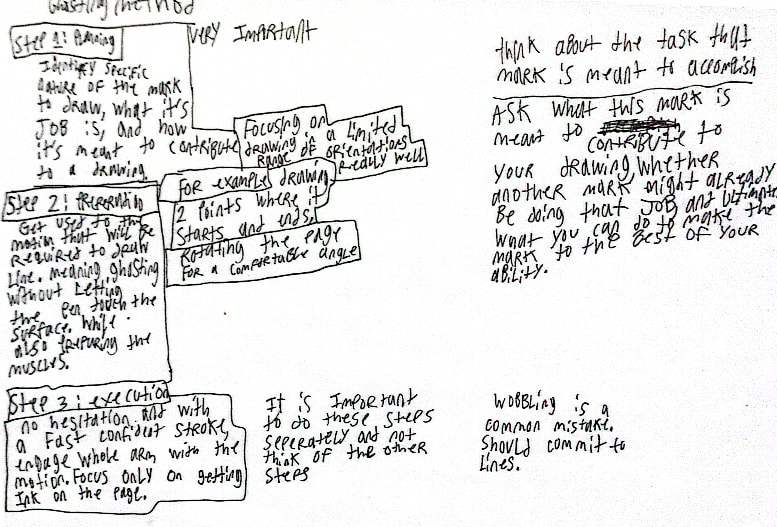 Ghosting method
Step 1: Planning
VERY IMPORTANT
Identify specific
nature of the mark
to draw, what it's
JOB is, and how
it's meant to contribute
to a drawing.
Focusing on
drawing in a limited
range of orientations
really well
For example drawing
2 points where it
starts and ends.
Rotating the page
for a comfortable angle
Step 2: Preparation
Get used to the
motion that will be
required to draw
line. meaning ghosting
without letting
the pen touch the
surface. while
also preparing the
muscles.
Step 3: execution
no hesitation. and with
a fast confident stroke,
engage whole arm with the
motion. Focus only on getting
Ink on the page.
It is Important
to do these steps
seperately and not
think of the other
steps
think about the task that
mark is meant to accomplish
ASK what this mark is
meant to
contribute to
your drawing, whether
another mark might already
Be doing that JOB and
what you can do to make the
mark to the best of your
ability.
Wobbling is a
common mistake.
Should commit to
lines.